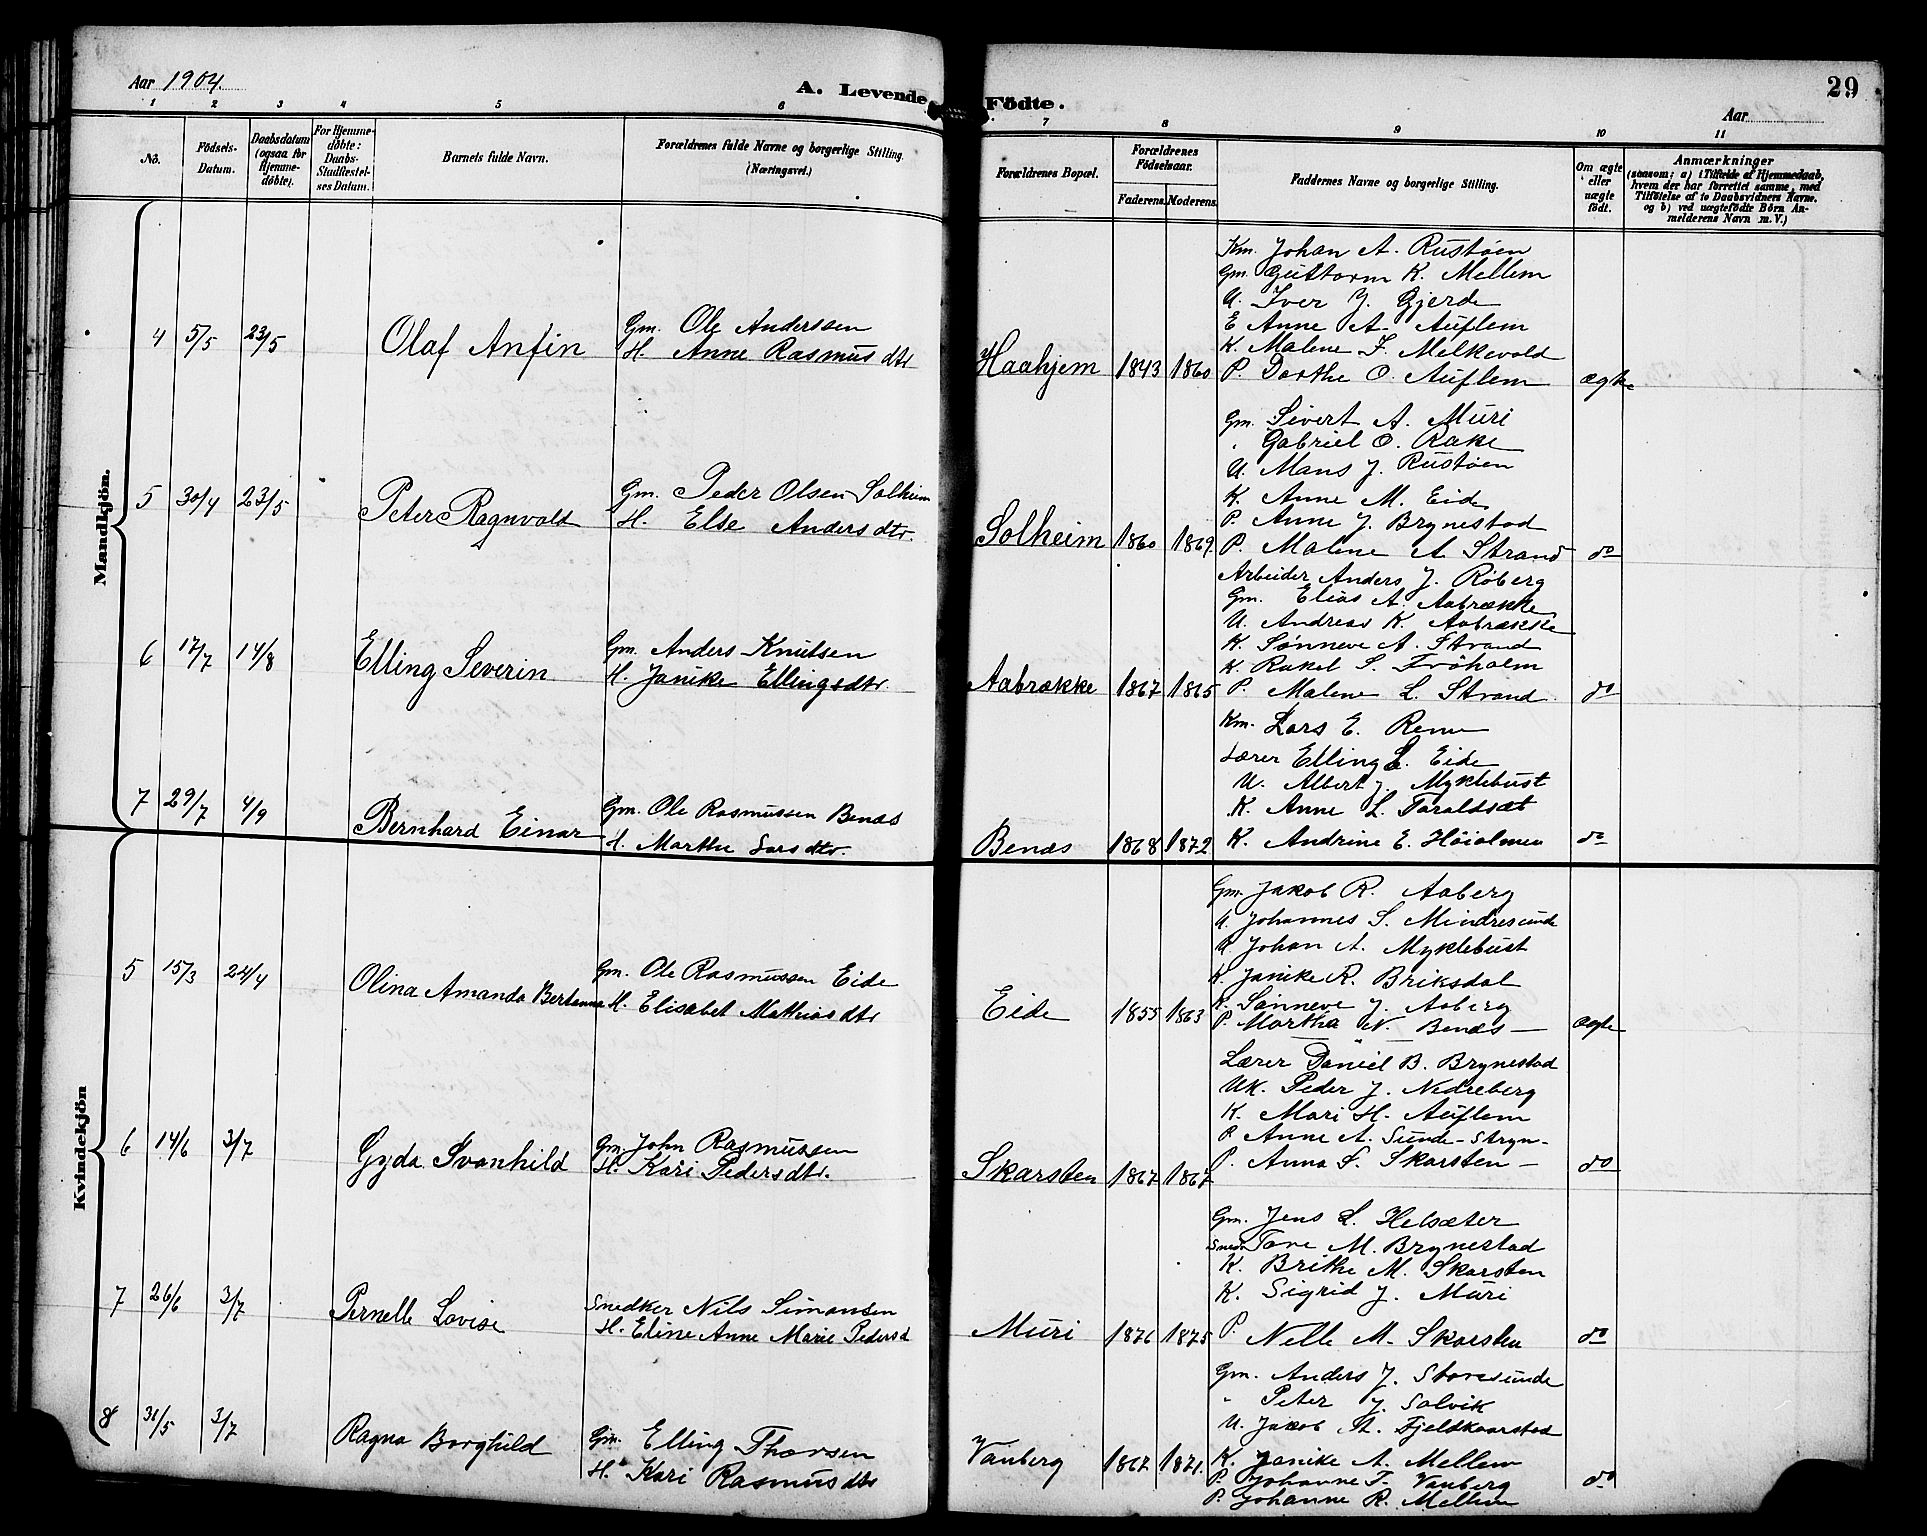 Aar 1904.
A. Levende Födte.
29
Aar
1 2 3 4 5 6 7 8 9 10 11
No.
Födsels-Datum.
Daabsdatum (ogsaa for Hjemme-döbte).
For Hjemme-döbte: Daabs-Stadfæstel-ses Datum.
Barnets fulde Navn.
Forældrenes fulde Navne og borgerlige Stilling. (Næringsvei.)
Forældrenes Bopæl.
Forældrenes Födselsaar.
Faderens. Moderens.
Faddernes Navne og borgerlige Stilling.
Om ægte eller uægte födt.
Anmærkninger
(saasom: a) i Tilfælde af Hjemmedaab,
hvem der har forrettet samme, med
Tilföielse af to Daabsvidners Navne.
og b) ved uægtefödte Börn An-
melderens Navn m. V.)
Mandkjön.
4 5/5 23/5 Olaf Anfin
Gm. Ole Anderssen
H. Anne Rasmusdtr
Haahjem 1843 1860
Km. Johan A. Rustøen
Gm. Guttorm K. Mellem
U. Iver J. Gjerde
E Anne A. Auflem
K. Malene J. Melkevold
P. Dorthe O. Auflem ægte
5 30/4 23/5 Peter Ragnvald
Gm. Peder Olsen Solheim
H. Else Andersdtr.
Solheim 1860 1869
Gm. Sivert A. Muri
" Gabriel O. Rake
U. Mans J. Rustøen
K. Anne M. Eide
P. Anne J. Brynestad
P. Malene A. Strand do
6 17/7 14/8 Elling Severin
Gm. Anders Knutsen
H. Janike Ellingsdtr.
Aabrække 1867 1865
Arbeider Anders J. Røberg
Gm. Elias A. Aabrække
U. Andreas K. Aabrække
K. Sønneve A. Strand
K. Rakel S. Frøholm
P. Malene L. Strand do
7 29/7 4/9 Bernhard Einar
Gm. Ole Rasmussen Benæs
H. Marthe Larsdtr.
Benæs 1868 1872
Km. Lars E. Reme
Lærer Elling L. Eide
U. Albert J. Myklebust
K. Anne L. Taraldsæt
K. Andrine E. Höiolmen do
Kvindekjön
5 15/3 24/4 Olina Amanda Bertanna
Gm. Ole Rasmussen Eide
H. Elisabet Mathiasdtr
Eide 1855 1863
Gm. Jakob R. Aaberg
U. Johannes S. Mindresunde
U. Johan A. Myklebust
K. Janike R. Briksdal
K. Sønneve J. Aaberg
P. Martha N. Benæs ægte
6 14/6 3/7 Gyda Svanhild
Gm. John Rasmussen
H. Kari Pedersdtr.
Skarsten 1867 1867
Lærer Daniel B. Brynestad
UK. Peder J. Nedreberg
K. Mari H. Auflem
P. Anne A. Sunde-Stryn-
P. Anna S. Skarsten do
7 26/6 3/7 Pernelle Lovise
Snedker Nils Simonsen
H. Eline Anne Marie Pedersd
Muri 1876 1875
Gm. Jens L. Helsæter
Snedk Tore M. Brynestad
K. Brithe M. Skarsten
K. Sigrid J. Muri
P. Nelle M. Skarsten do
8 31/5 3/7 Ragna Borghild
Gm. Elling Thorsen
H. Kari Rasmusdtr
Vanberg 1867 1871.
Gm. Anders J. Storesunde
" Peter J. Solvik
U. Jakob A. Fjeldkaarstad
K. Janike A. Mellem
P. Johanne T. Vanberg do
P. Johanne R. Mellem